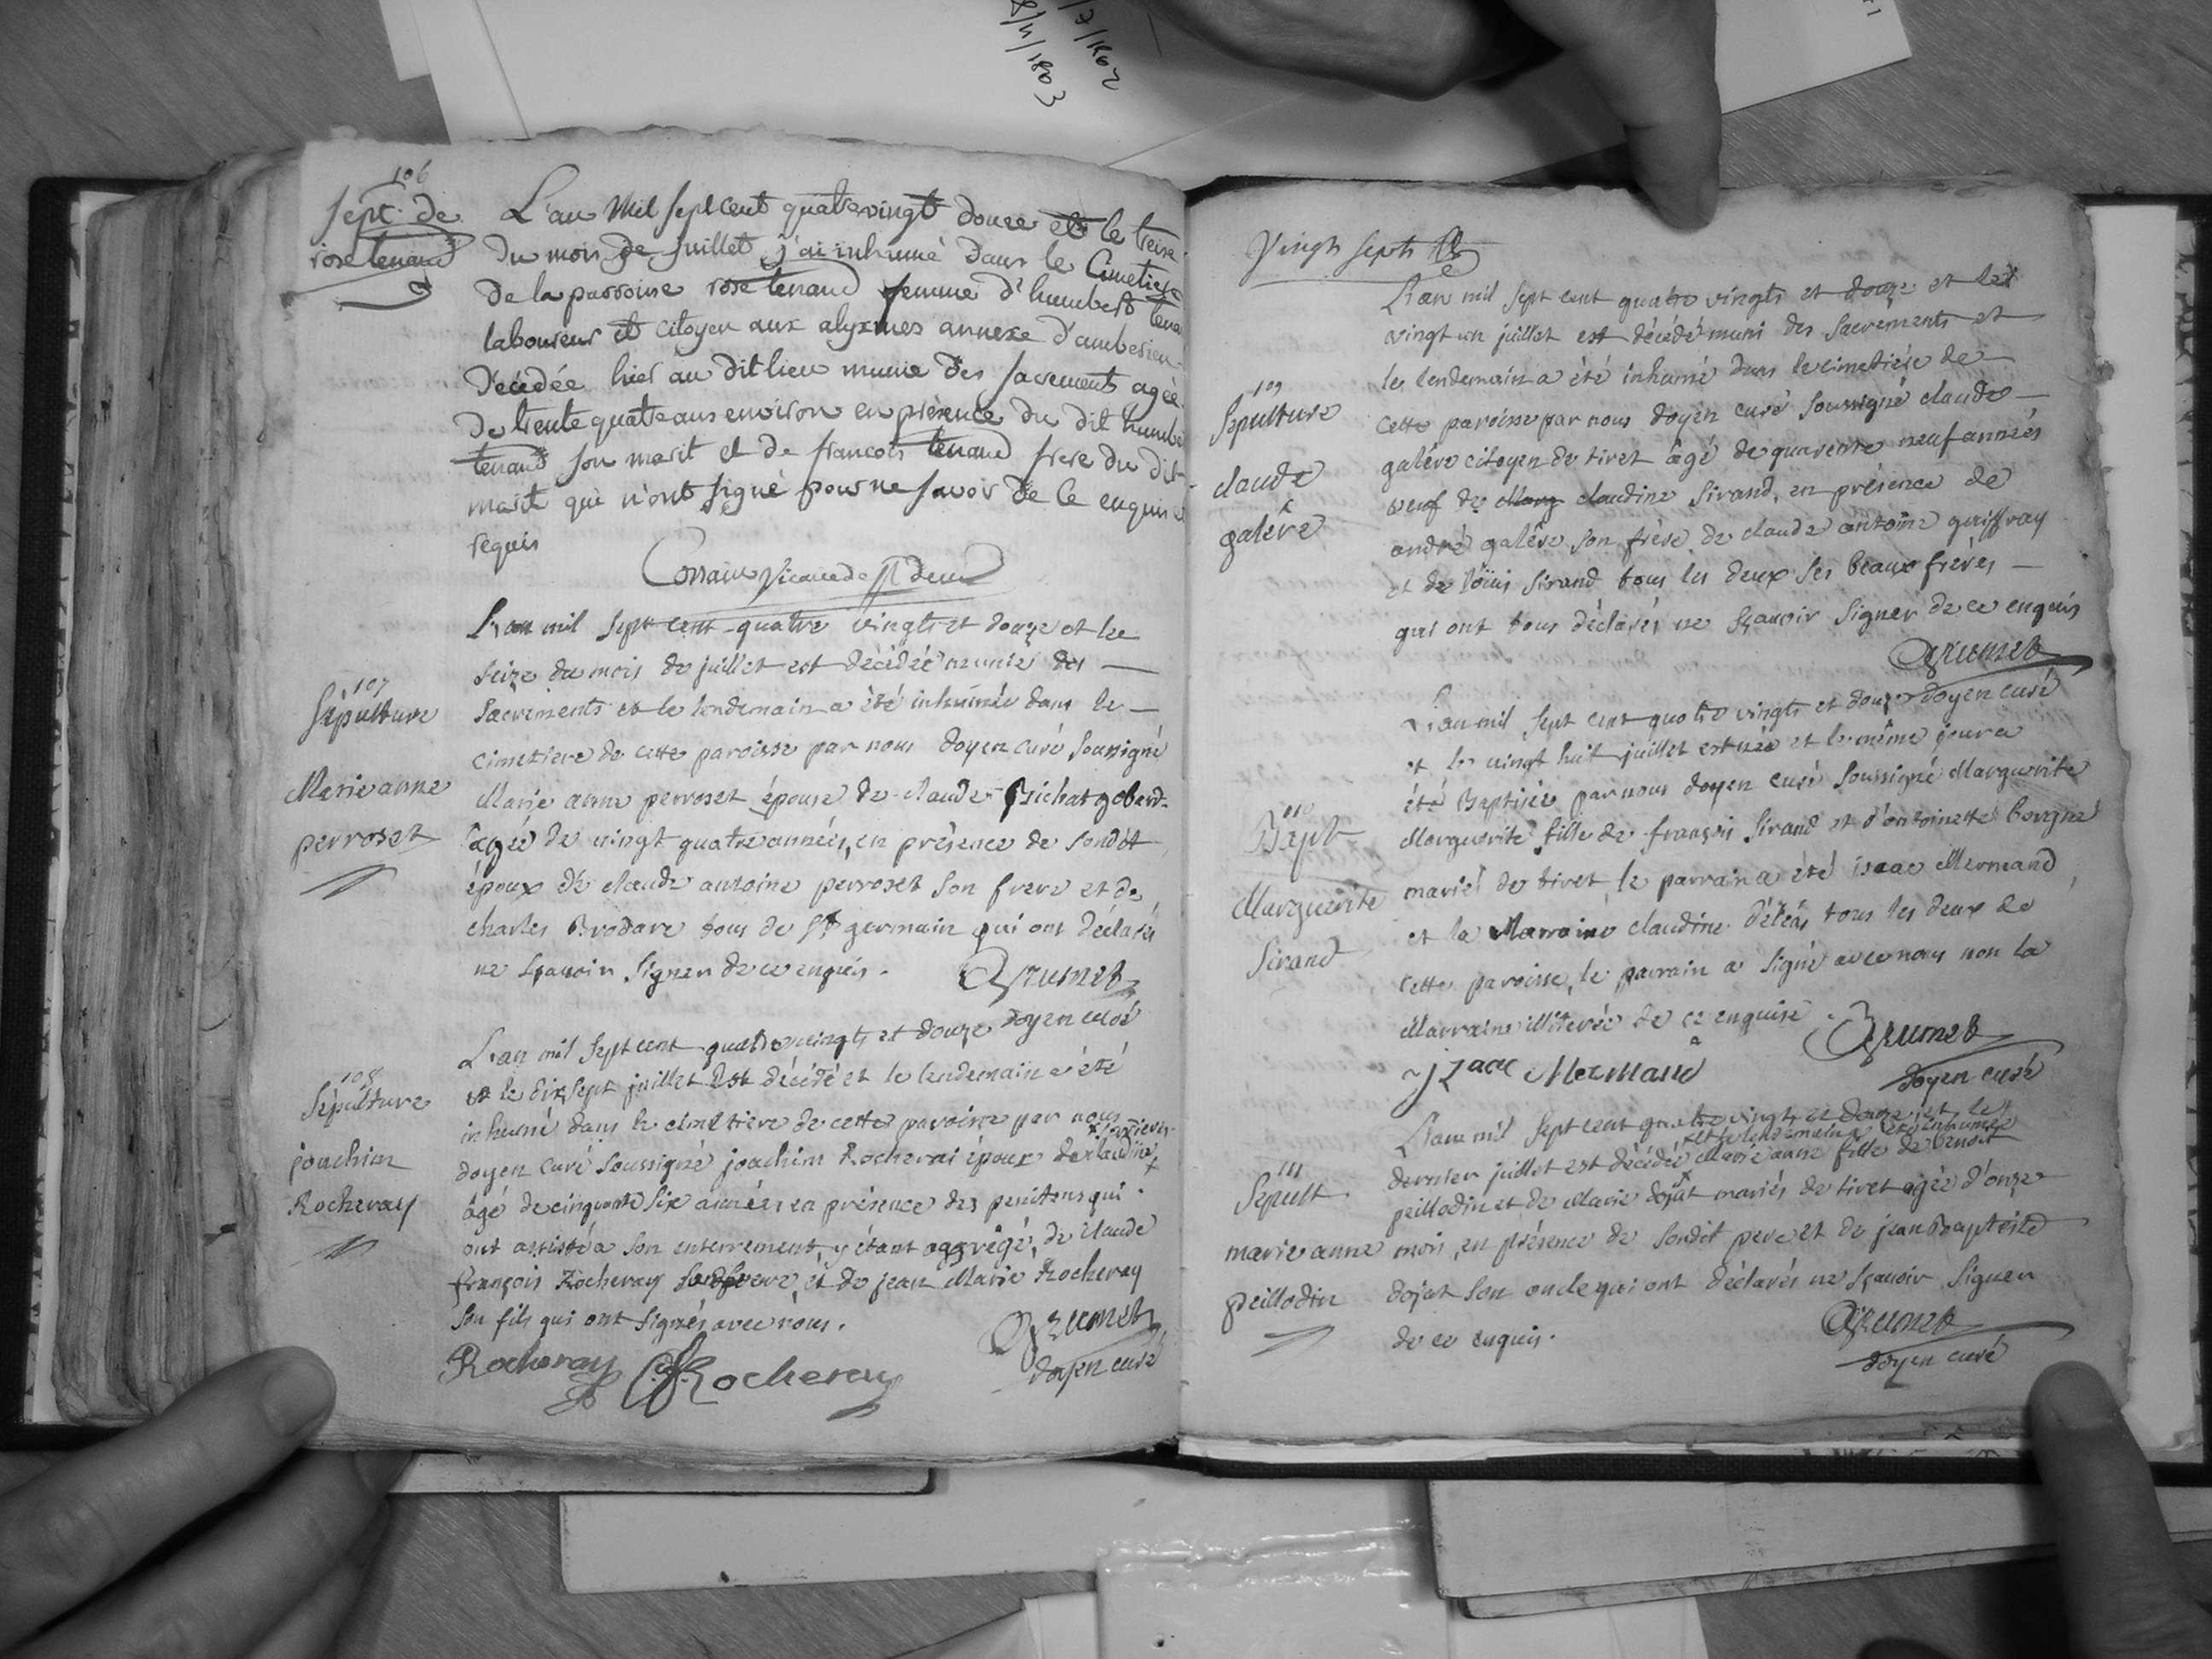 106
Sept. de
rose tenand
L'an Mil sept cent quatrevingt douze et le treize
du mois de juillet j'ai inhumé dans le Cimetiere
de la parroisse rose tenand femme d'humbert tena
laboureur et citoyen aux alymes annexe d'amberieu
Décédée hier au dit lieu munie des sacrements agée
de trente quatre ans environ en présence du dit humbe
tenand son marit et de francois tenand frere du dit
marit qui n'ont signé pour ne savoir de ce enquis e
requis
Vicaire de
107
Sépulture
Marie anne
perroset
L'an mil sept cent quatre vingts et douze et le
seize du mois de juillet est décédée munie des
Sacrements et le lendemain a été inhumée dans le
cimetiere de cette paroisse par nous doyen curé soussigné
Marie anne perroset épouse de claude Bichat gobard
agée de vingt quatre années, en présence de sondit
époux de claude antoine perroset son frere et de
charles Brodare tous de St germain qui ont déclarés
ne sçavoir signer de ce enquis.
Grumet
doyen curé
108
Sépulture
joachim
Rocheray
L'an mil sept cent quatre vingts et douze
et le dix sept juillet est décédé et le lendemain a été
inhumé dans le cimetiere de cette paroisse par nous
doyen curé soussigné joachim Rocherai époux de claudine
âgé de cinquante six années en présence des penitens qui
ont assisté a son enterrement, y étant aggrégé, de claude
françois Rocheray son frere, et de jean Marie Rocheray
son fils qui ont signés avec nous.
Grumet
doyen curé
Rocheray C.f. Rocheray
Vingt sept
109
Sepulture
claude
galêve
L'an mil sept cent quatre vingts et douze et le
vingt un juillet est décédé muni des sacrements et
le lendemain a été inhumé dans le cimetiére de
cette paroisse par nous doyen curé soussigné claude
galéve citoyen de tiret âgé de quarente neuf années
veuf de Marg claudine Sirand, en présence de
andré galêve son frére de claude antoine guiffray
et de loüis Sirand tous les deux ses beaux fréres
qui ont tous déclarés ne sçavoir signer de ce enquis
Grumet
doyen curé
110
Bapt
Marguerite
Sirand
L'an mil sept cent quatre vingts et douze
et le vingt huit juillet est née et le même jour a
été Baptisée par nous doyen curé soussigné Marguerite
Marguerite fille de françois Sirand et d'antoinette borgne
mariés de tiret le parrain a été isaac Mermand
et la Marraine claudine tous les deux de
cette paroisse, le parrain a signé avec nous non la
Marraine illiterée de ce enquise
Izaac Mermand
Grumet
doyen curé
111
Sepult
marie anne
peillodin
L'an mil sept cent quatre vingts et douze et le
et le lendemain a été inhumée
dernier juillet est décédée Marie anne fille de benoit
peillodin et de Marie dojat mariés de tiret agée d'onze
mois, en présence de sondit pere et de jean Baptiste
dojat son oncle qui ont déclarés ne sçavoir signer
de ce enquis.
Grumet
doyen curé